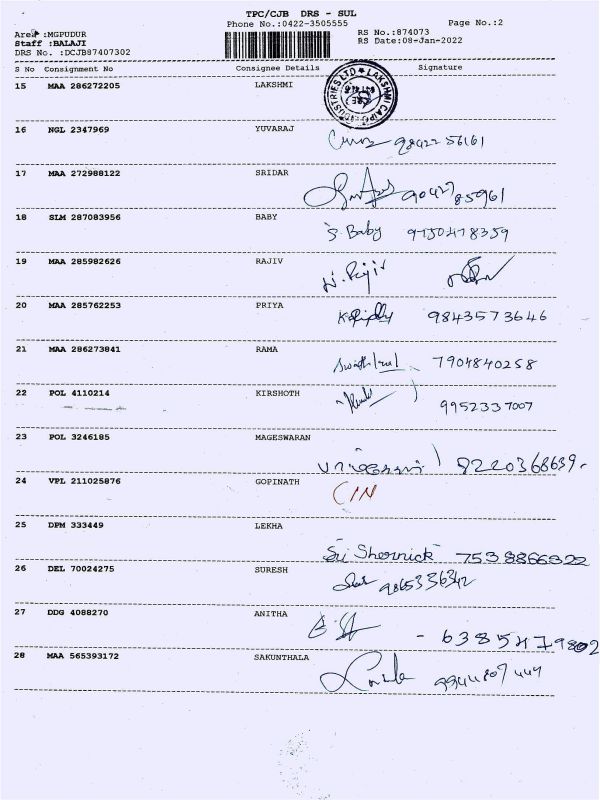 TPC/CJB DRS - SUL
Phone No.:0422-3505555
Page No.:2
Area :MGPUDUR
RS No.:874073
Staff :BALAJI
RS Date:08-Jan-2022
DRS No. :DCJB87407302
S No Consignment No Consignee Details Signature
15 MAA 286272205 LAKSHMI
16 NGL 2347969 YUVARAJ 9842256161
17 MAA 272988122 SRIDAR 9042785961
18 SLM 287083956 BABY S. Baby 9750478359
19 MAA 285982626 RAJIV
20 MAA 285762253 PRIYA 9843573646
21 MAA 286273841 RAMA 7904840258
22 POL 4110214 KIRSHOTH 9952337007
23 POL 3246185 MAGESWARAN 8220368639
24 VPL 211025876 GOPINATH
25 DPM 333449 LEKHA Sri Shernick 7538866322
26 DEL 70024275 SURESH 9865336342
27 DDG 4088270 ANITHA
28 MAA 565393172 SAKUNTHALA